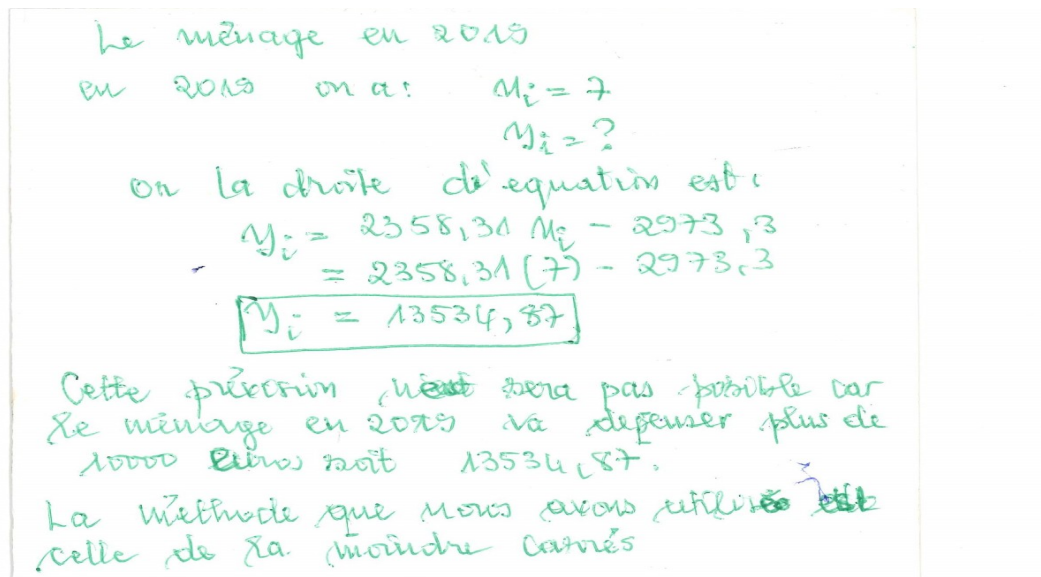 Le ménage en 2019
en 2019 on a: xi = 7
yi = ?
or la droite d'équation est:
yi = 2358,31 xi - 2973,3
= 2358,31 (7) - 2973,3
yi = 13534,87
Cette prévision sera pas posible car
le ménage en 2019 va depenser plus de
10000 Euros soit 13534,87.
La méthode que nous avons utilisée est
celle de la moindre carrés